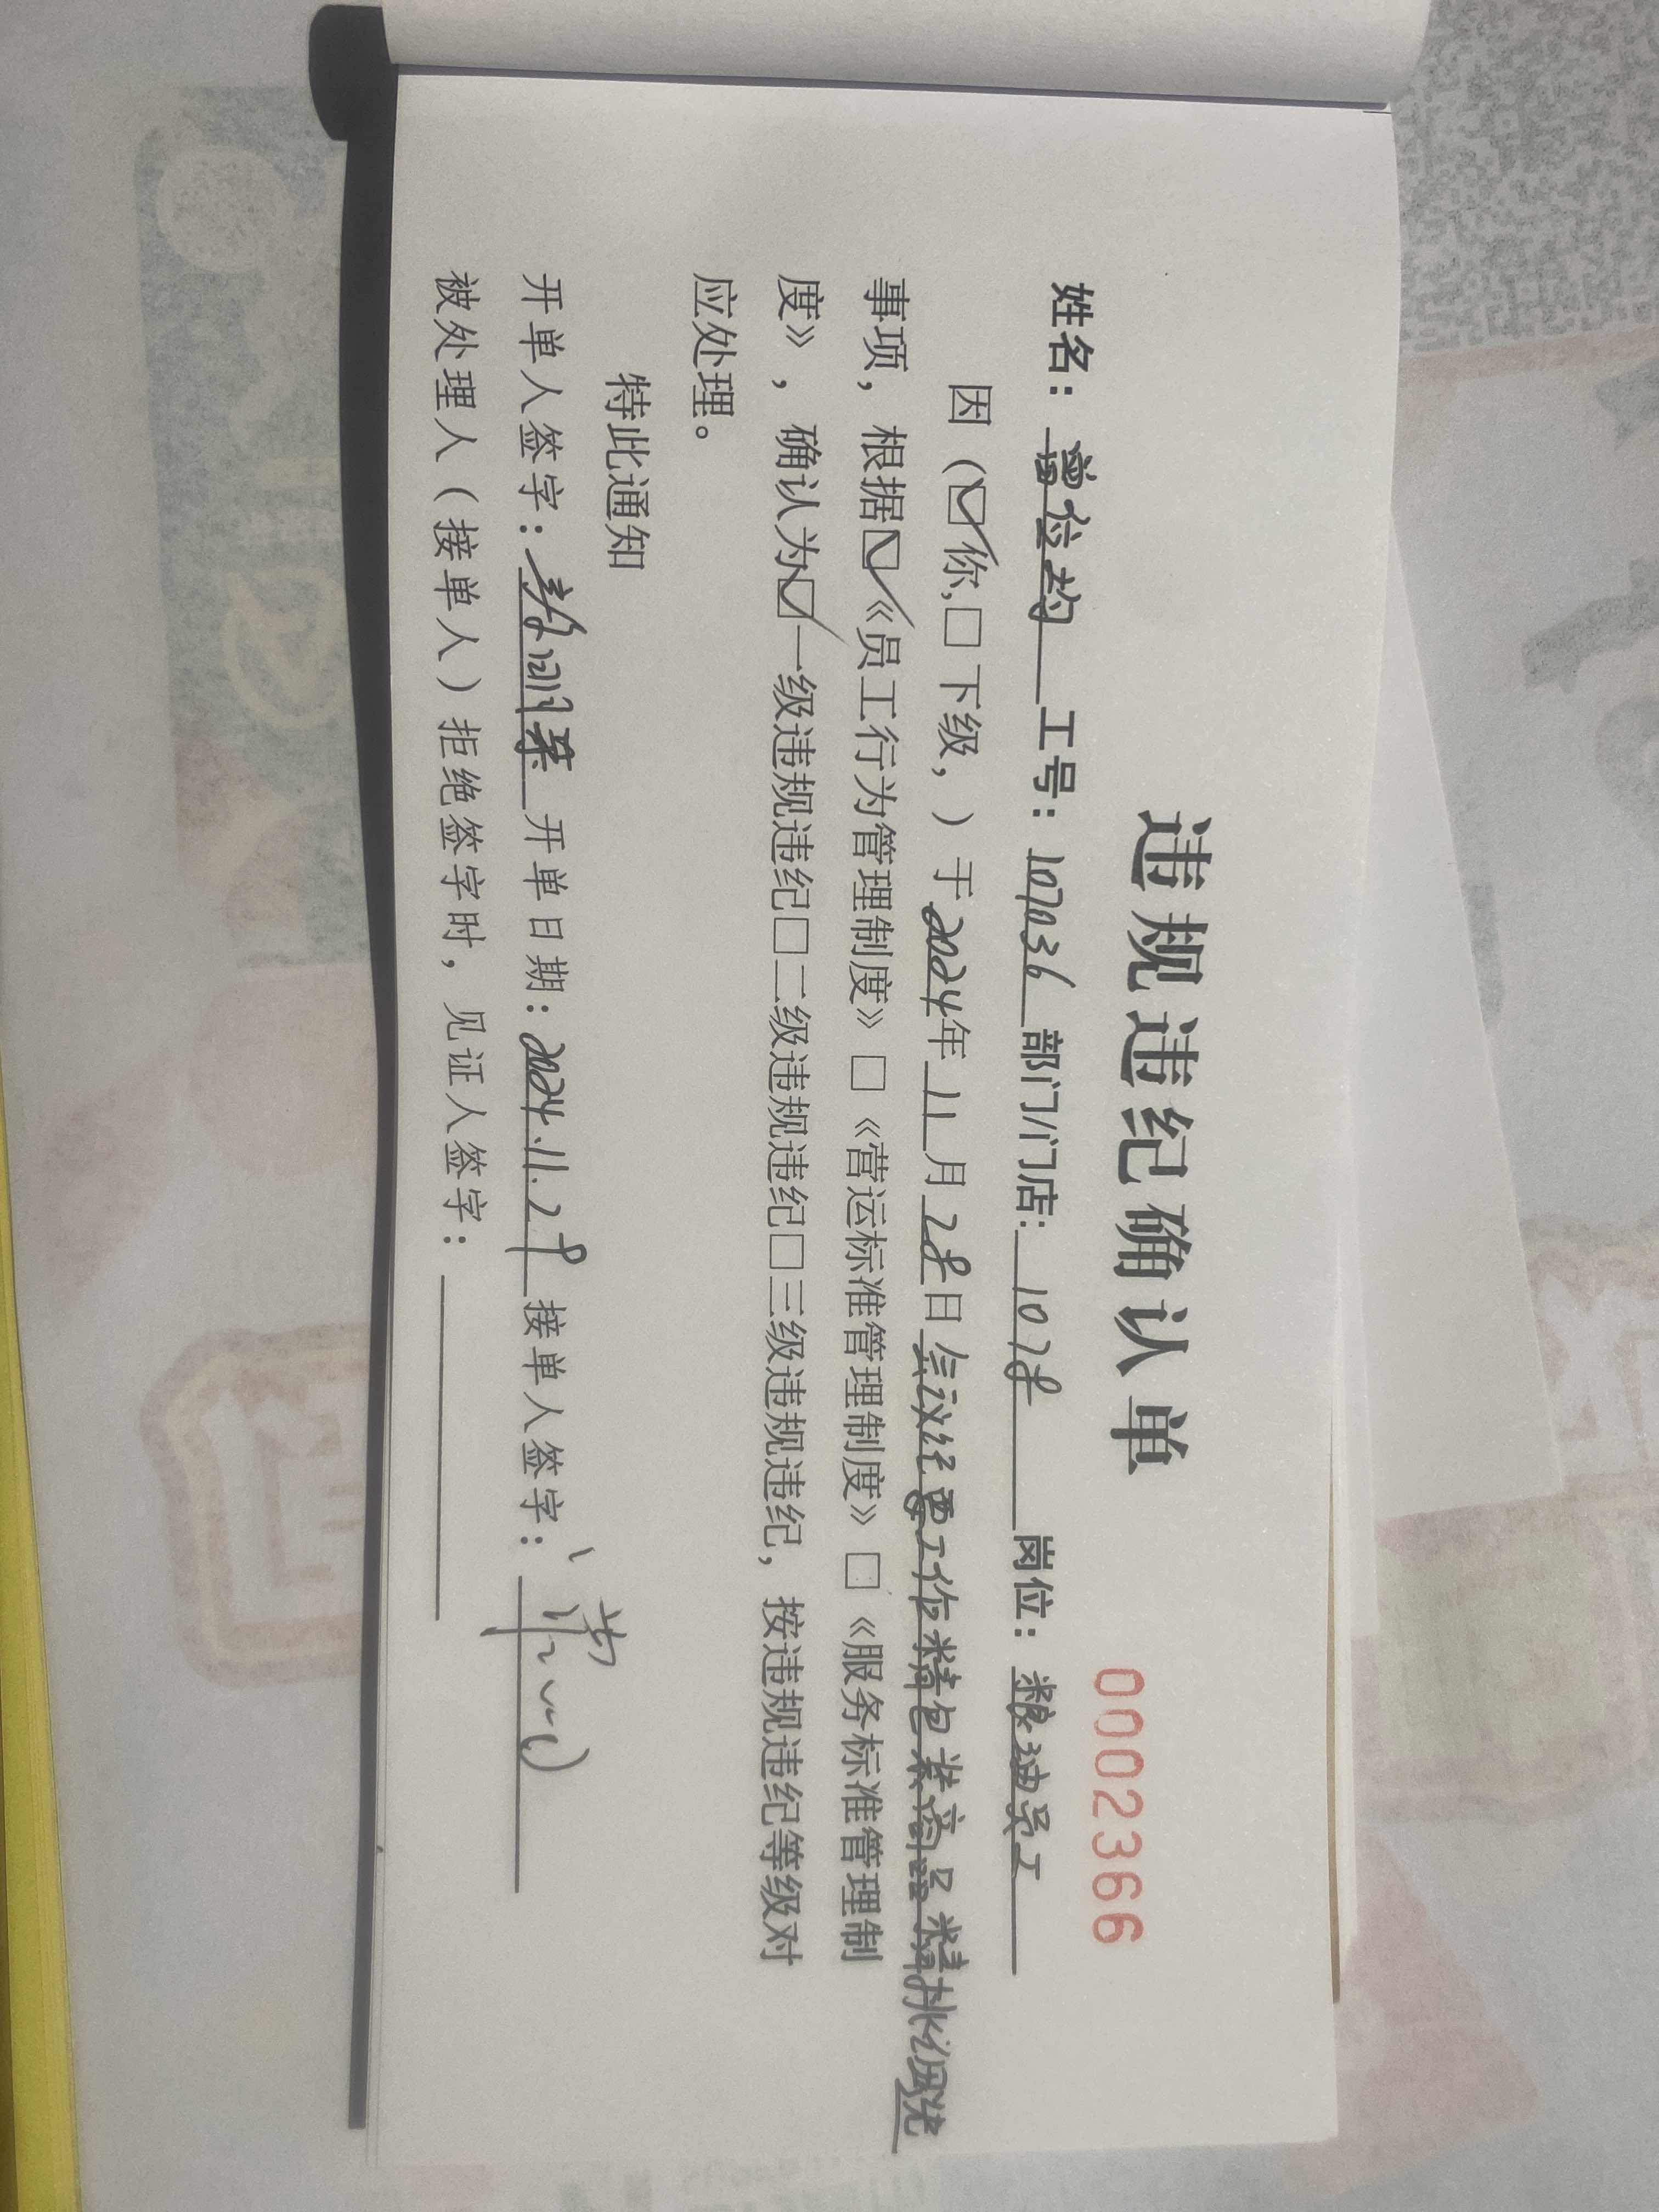 违规违纪确认单
0002366
姓名：曾俭均 工号：107036 部门/门店：1078 岗位：粮油员工
因（☑你,□下级，）于2024年11月28日会议纪要工作精包装商品精挑细洗
事项，根据☑《员工行为管理制度》□《营运标准管理制度》□《服务标准管理制
度》，确认为☑一级违规违纪□二级违规违纪□三级违规违纪，按违规违纪等级对
应处理。
特此通知
开单人签字： 开单日期：2024.11.28 接单人签字：
被处理人（接单人）拒绝签字时，见证人签字：